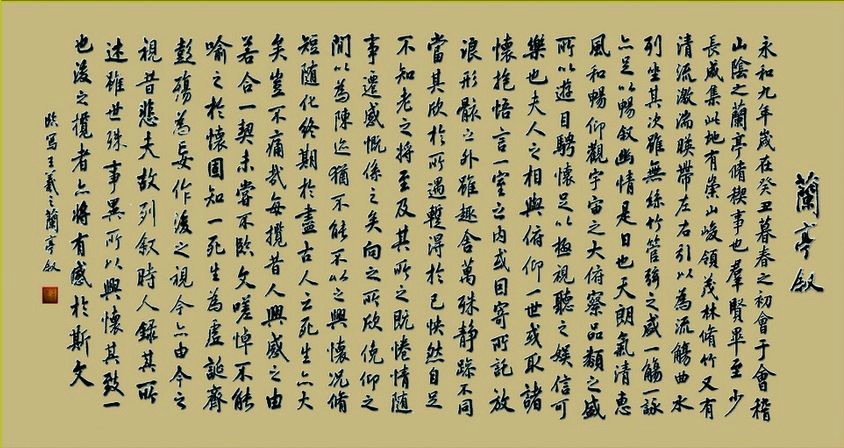 蘭亭敘
永和九年歲在癸丑暮春之初會于會稽
山陰之蘭亭脩稧事也羣賢畢至少
長咸集此地有崇山峻領茂林脩竹又有
清流激湍暎帶左右引以為流觴曲水
列坐其次雖無絲竹管弦之盛一觴一詠
亦足以暢敘幽情是日也天朗氣清惠
風和暢仰觀宇宙之大俯察品類之盛
所以遊目騁懷足以極視聽之娛信可
樂也夫人之相與俯仰一世或取諸
懷抱悟言一室之內或因寄所託放
浪形骸之外雖趣舍萬殊靜躁不同
當其欣於所遇蹔得於己怏然自足
不知老之將至及其所之既惓情隨
事遷感慨係之矣向之所欣俛仰之
間以為陳迹猶不能不以之興懷況脩
短隨化終期於盡古人云死生亦大
矣豈不痛哉每攬昔人興感之由
若合一契未嘗不臨文嗟悼不能
喻之於懷固知一死生為虛誕齊
彭殤為妄作後之視今亦由今之
視昔悲夫故列敘時人錄其所
述雖世殊事異所以興懷其致一
也後之攬者亦將有感於斯文
臨寫王羲之蘭亭敘